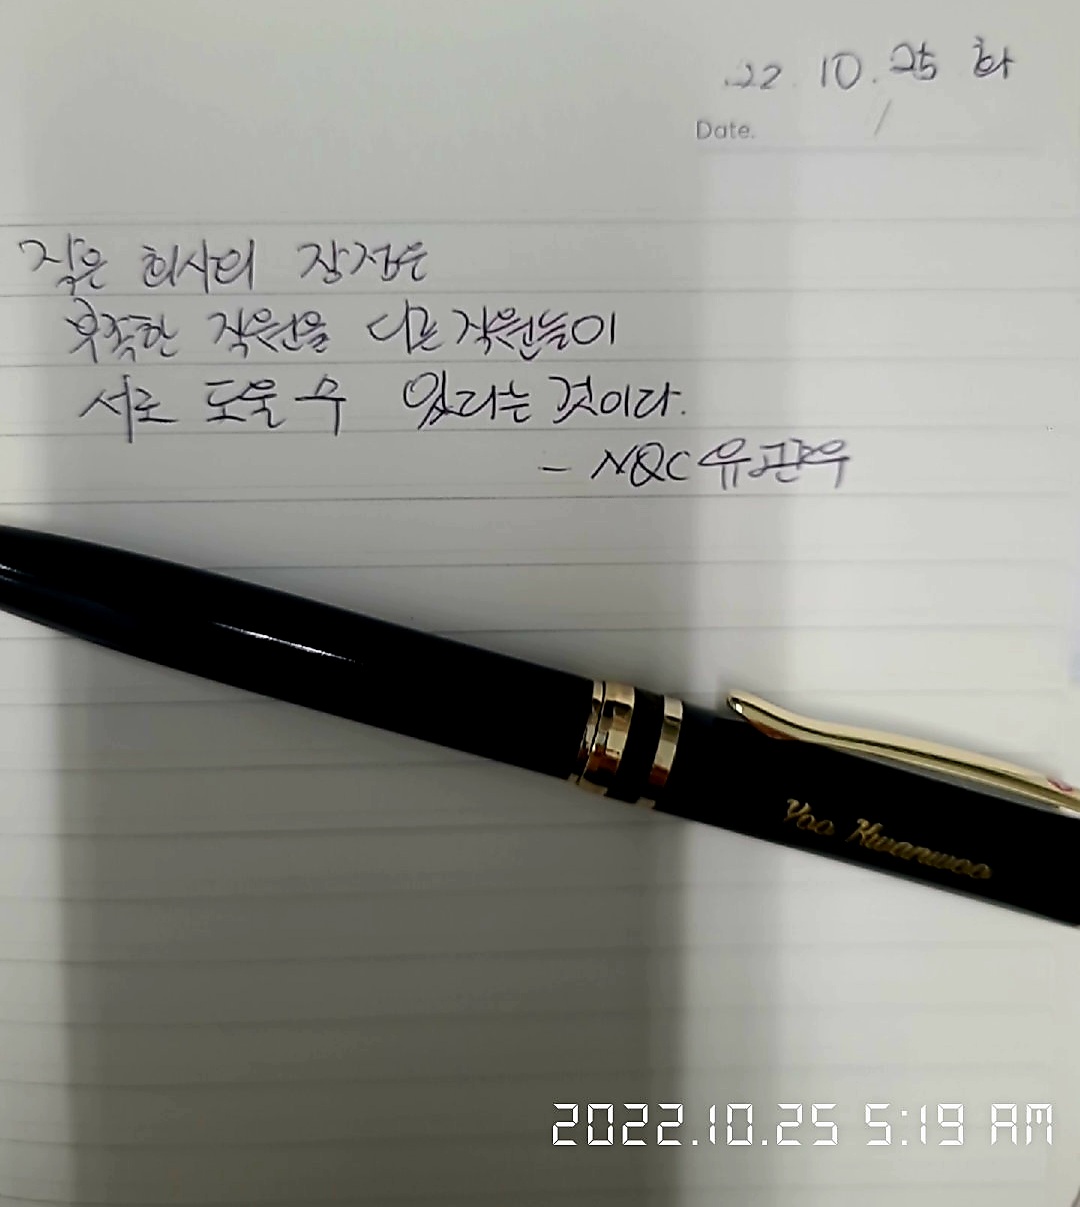 22. 10. 25 화
Date. /
작은 회사의 장점은
부족한 직원을 다른 직원들이
서로 도울 수 있다는 것이다.
- NQC 유관우
Yoo Kwanwoo
2022.10.25 5:19 AM